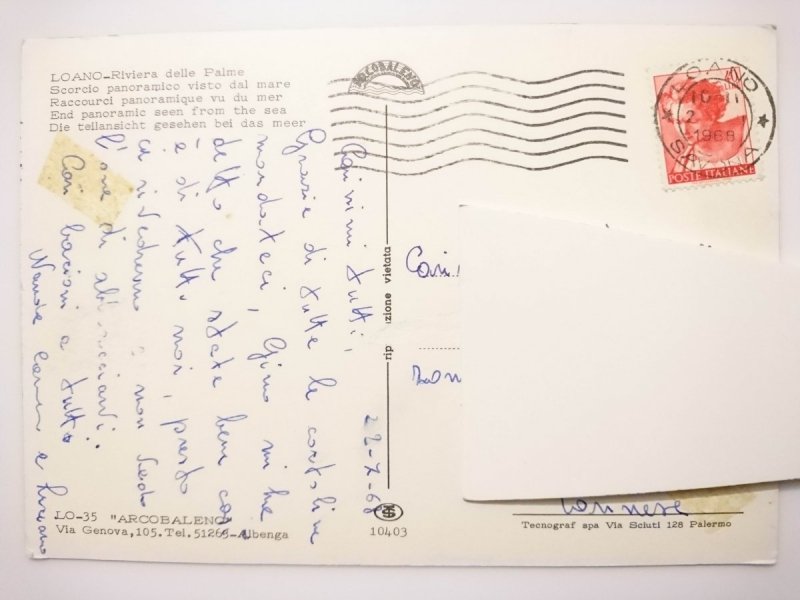 LOANO-Riviera delle Palme
Scorcio panoramico visto dal mare
Raccourci panoramique vu du mer
End panoramic seen from the sea
Die teilansicht gesehen bei das meer
ARCOBALENO
LOANO
10-11
2
1968
SAVONA
POSTE ITALIANE
22-7-68
Carissimi tutti,
Grazie di tutte le cartoline
mandateci, Gino mi ha
detto che state bene così
è di tutto noi, presto
ci rivedremo e non vedo
l'ora di abbracciarvi.
Cari bacioni a tutti
Wanda e Luciano
rip
zione vietata
Cari
LO-35 "ARCOBALENO"
Via Genova,105.Tel.51265-Albenga
10403
Tecnograf spa Via Sciuti 128 Palermo